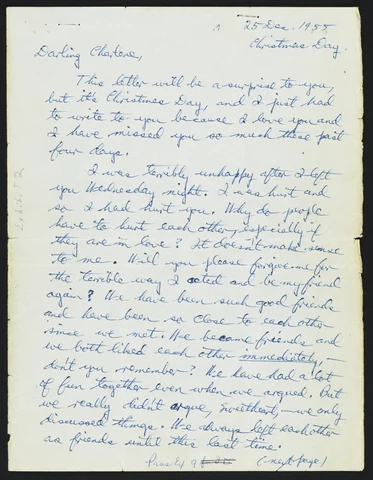 25 Dec. 1955
Christmas Day.
Darling Charlene,
This letter will be a surprise to you,
but it's Christmas Day, and I just had
to write to you because I love you and
I have missed you so much these past
four days.
I was terribly unhappy after I left
you Wednesday night. I was hurt and
so I had hurt you. Why do people
have to hurt each other, especially if
they are in love? It doesn't make sense
to me. Will you please forgive me for
the terrible way I acted and be my friend
again? We have been such good friends
and have been so close to each other
since we met. We became friends and
we both liked each other immediately,—
don't you remember? We have had a lot
of fun together even when we argued. But
we really didn't argue, sweetheart,—we only
discussed things. We always left each other
as friends until this last time.
(next page)